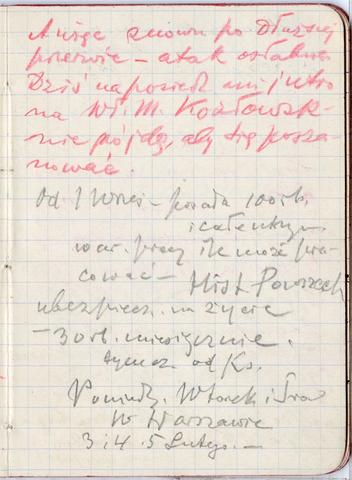 A więc znowu po dłuższej
przerwie – atak osłabn.
Dziś na posiedz. ani jutro
na Wł. M. Kozłowsk-
nie pójdę, aby się posza-
nować.
Od 1 Wrześ – posada 100 rb.
i całentrzym
war. pracy ile może pra-
cować – Hist. Powszech
ubezpiecz. na życie
– 30 rb. miesięcznie.
tymcz. od Ks.
Poniedz. Wtorek i Śro
w Warszawie
3 i 4. 5 Lutego. –